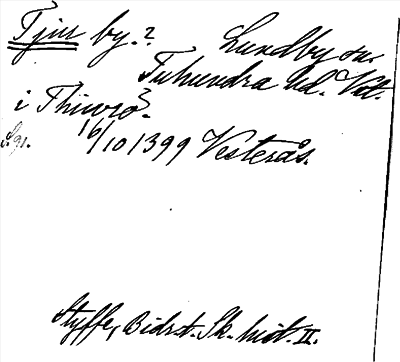 Tjur by.? Lundby sn.
Tuhundra hd. Vstm.
i Thiwrø?
S. 91. 16/10 1399 Vesterås.
Styffe, Bidr. t. Sk. hist. II.